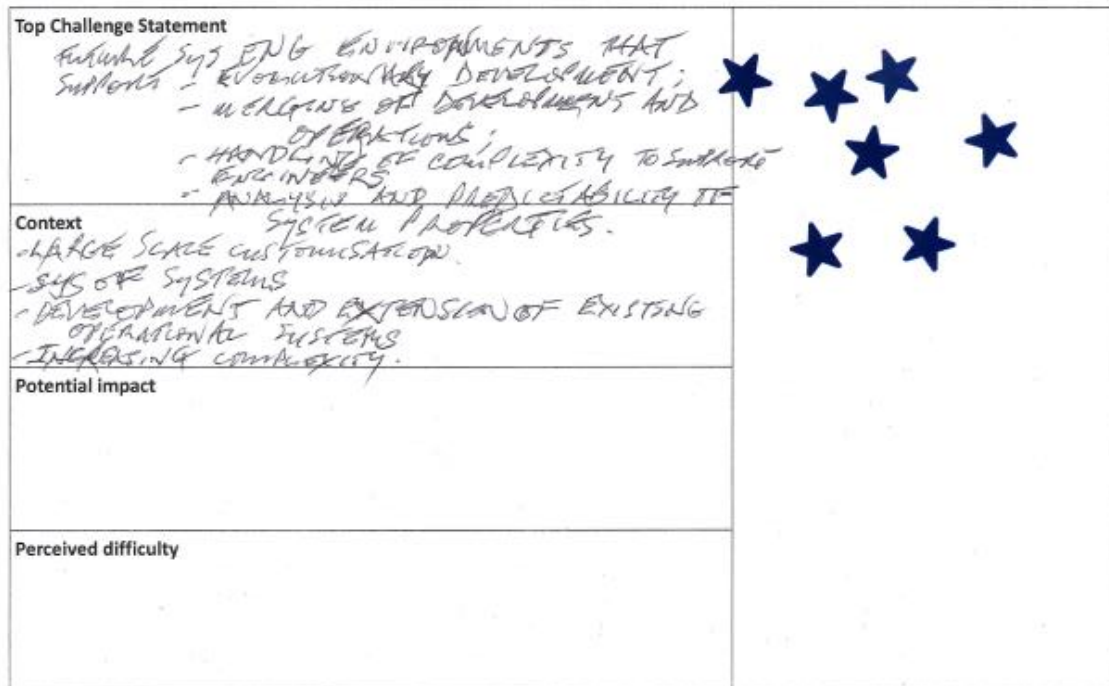 Top Challenge Statement
FUTURE SYS ENG ENVIRONMENTS THAT
SUPPORT - EVOLUTIONARY DEVELOPMENT;
- MERGING OF DEVELOPMENT AND
OPERATIONS;
- HANDLING OF COMPLEXITY TO SUPPORT
ENGINEERS
- ANALYSIS AND PREDICTABILITY OF
SYSTEM PROPERTIES.
Context
- LARGE SCALE CUSTOMISATION.
- SYS OF SYSTEMS
- DEVELOPMENT AND EXTENSION OF EXISTING
OPERATIONAL SYSTEMS
- INCREASING COMPLEXITY.
Potential impact
Perceived difficulty